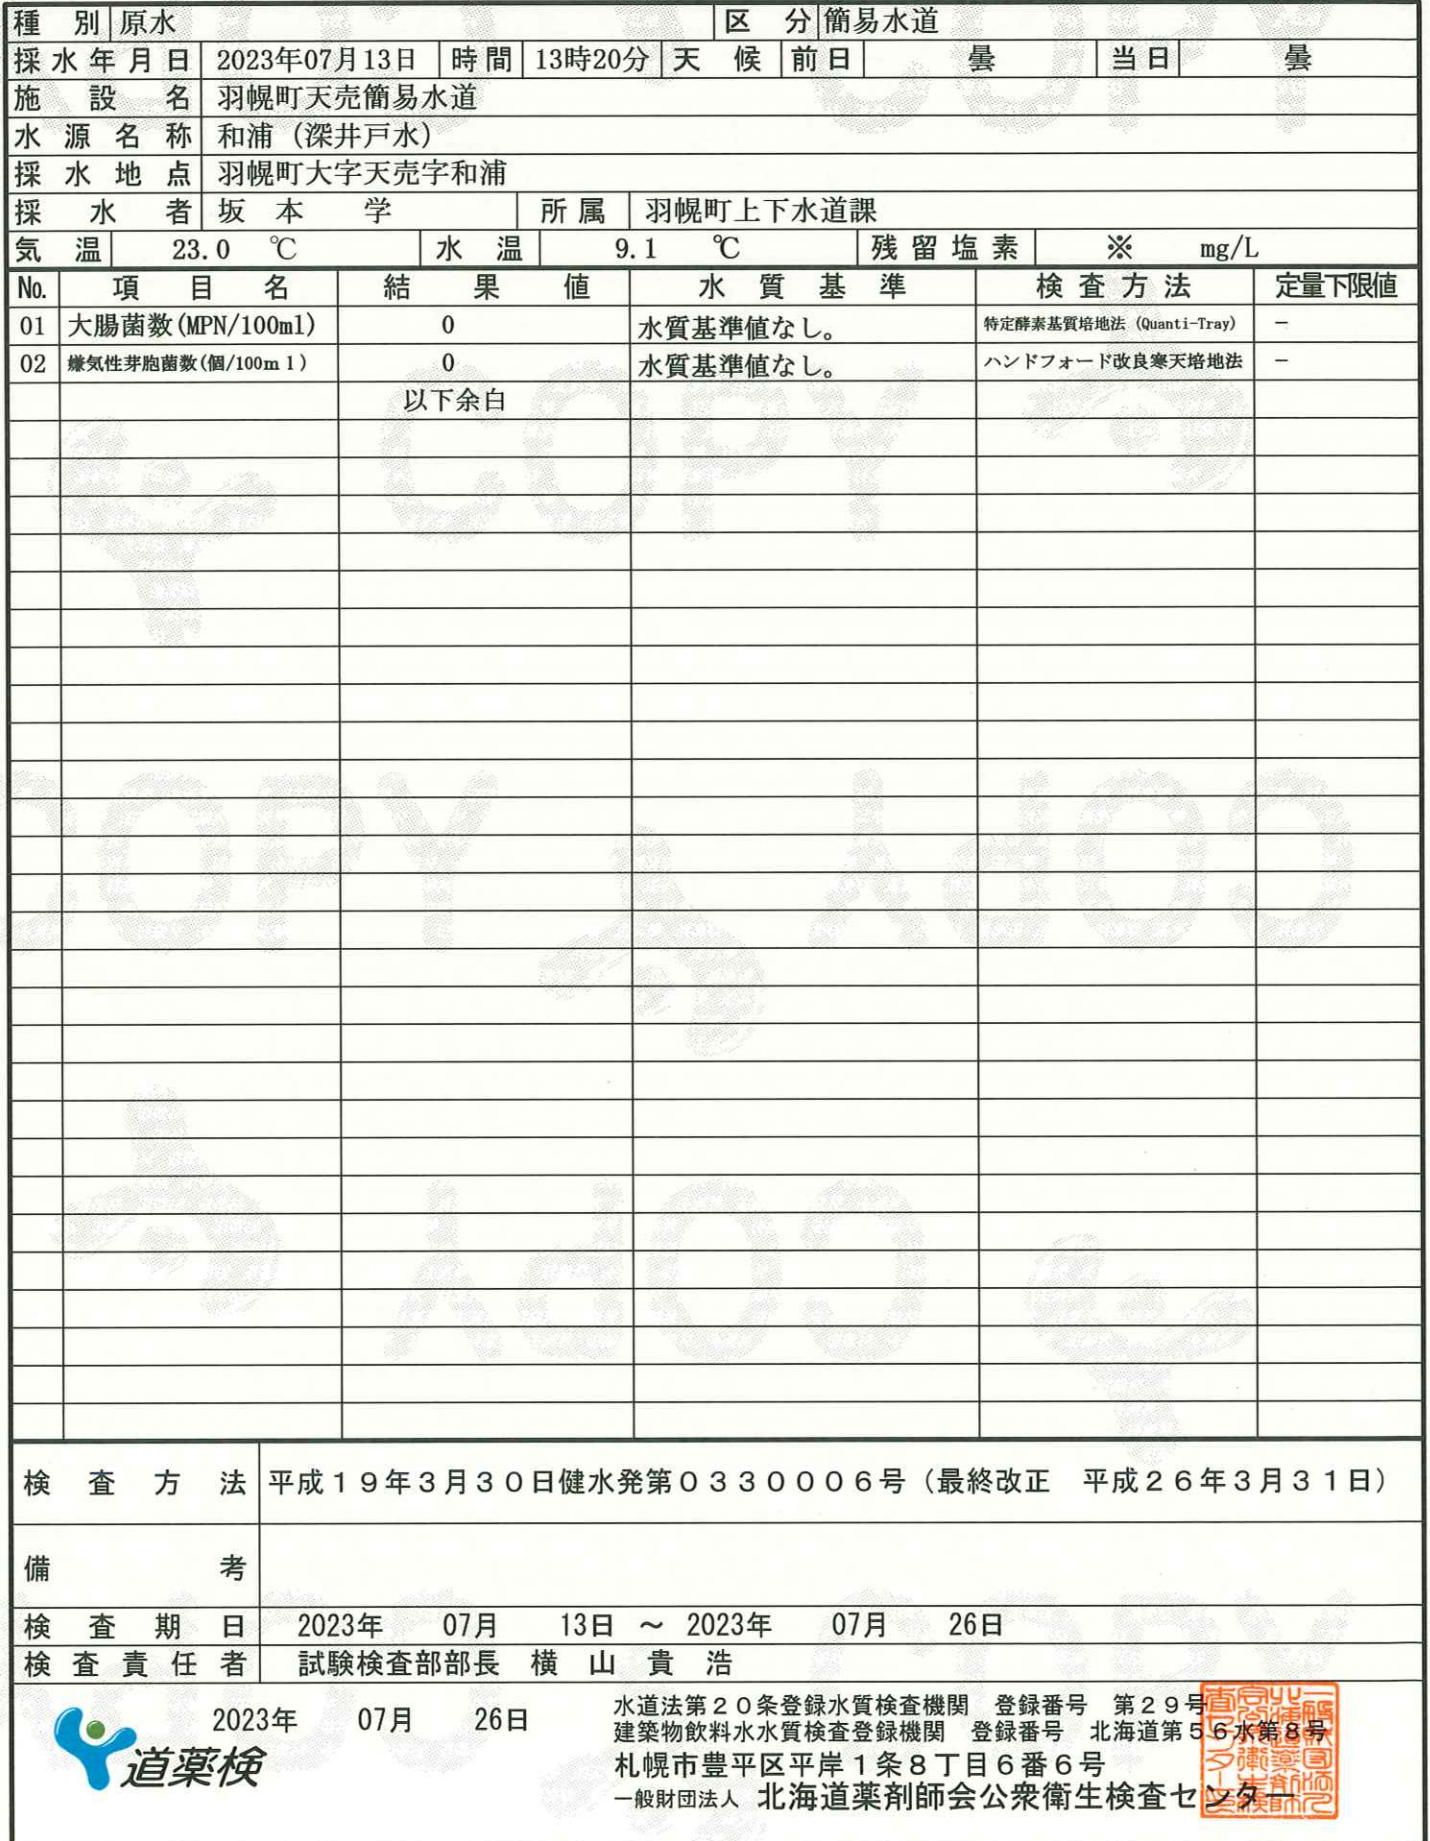 種別 原水 区分 簡易水道
採水年月日 2023年07月13日 時間 13時20分 天候 前日 曇 当日 曇
施設名 羽幌町天売簡易水道
水源名称 和浦（深井戸水）
採水地点 羽幌町大字天売字和浦
採水者 坂本 学 所属 羽幌町上下水道課
気温 23.0 ℃ 水温 9.1 ℃ 残留塩素 ※ mg/L
No. 項目名 結果値 水質基準 検査方法 定量下限値
01 大腸菌数(MPN/100ml) 0 水質基準値なし。 特定酵素基質培地法（Quanti-Tray） －
02 嫌気性芽胞菌数(個/100ml) 0 水質基準値なし。 ハンドフォード改良寒天培地法 －
以下余白
COPY
COPY
COPY
COPY
検査方法 平成１９年３月３０日健水発第０３３０００６号（最終改正 平成２６年３月３１日）
備考
検査期日 2023年 07月 13日 ～ 2023年 07月 26日
検査責任者 試験検査部部長 横山貴浩
2023年 07月 26日
道薬検
水道法第２０条登録水質検査機関 登録番号 第２９号
建築物飲料水水質検査登録機関 登録番号 北海道第５６水第８号
札幌市豊平区平岸１条８丁目６番６号
一般財団法人 北海道薬剤師会公衆衛生検査センター